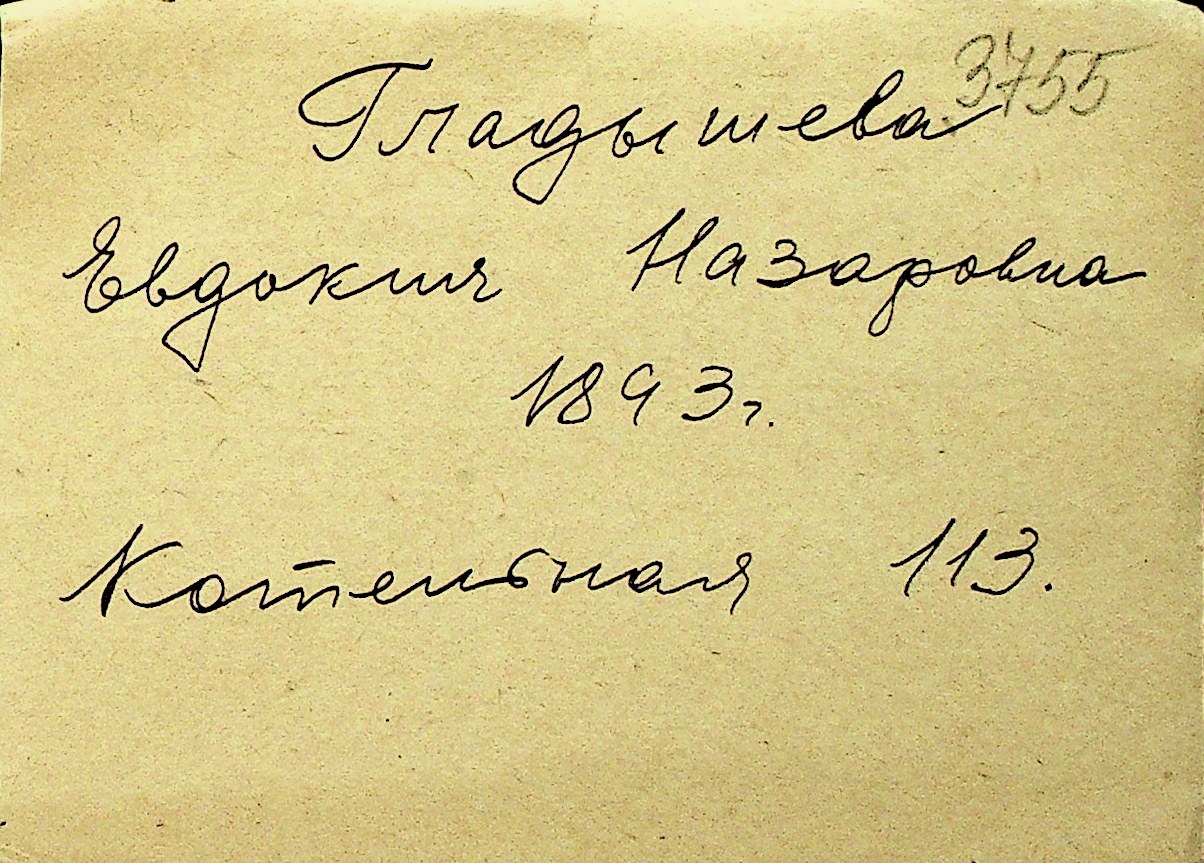 3755
Гладышева
Евдокия Назаровна
1893г.
Котельная 113.